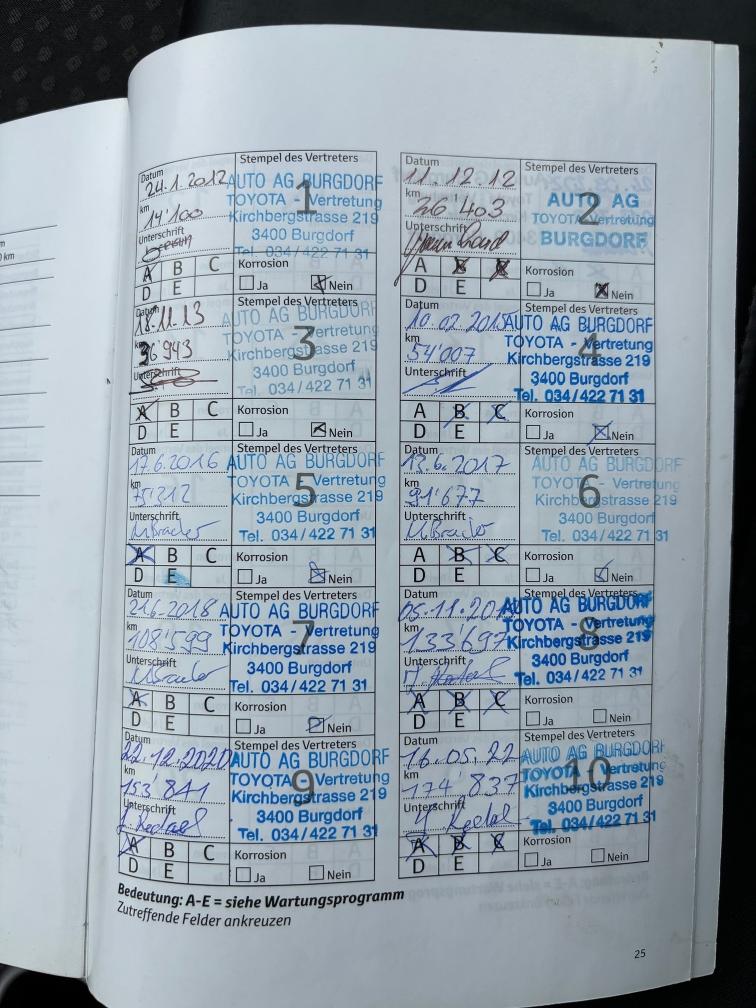 m
0 km
Datum
24.1.2012
km
14'100
Unterschrift
Stempel des Vertreters
1
AUTO AG BURGDORF
TOYOTA - Vertretung
Kirchbergstrasse 219
3400 Burgdorf
Tel. 034/422 71 31
A B C
D E
Korrosion
Ja Nein
Datum
11.12.12
km
26'403
Unterschrift
Stempel des Vertreters
2
AUTO AG
TOYOTA Vertretung
BURGDORF
A B C
D E
Korrosion
Ja Nein
Datum
18.11.13
km
36'943
Unterschrift
Stempel des Vertreters
3
AUTO AG BURGDORF
TOYOTA - Vertretung
Kirchbergstrasse 219
3400 Burgdorf
Tel. 034/422 71 31
A B C
D E
Korrosion
Ja Nein
Datum
10.02.2015
km
54'007
Unterschrift
Stempel des Vertreters
4
AUTO AG BURGDORF
TOYOTA - Vertretung
Kirchbergstrasse 219
3400 Burgdorf
Tel. 034/422 71 31
A B C
D E
Korrosion
Ja Nein
Datum
17.6.2016
km
75'312
Unterschrift
Stempel des Vertreters
5
AUTO AG BURGDORF
TOYOTA - Vertretung
Kirchbergstrasse 219
3400 Burgdorf
Tel. 034/422 71 31
A B C
D E
Korrosion
Ja Nein
Datum
13.6.2017
km
91'677
Unterschrift
Stempel des Vertreters
6
AUTO AG BURGDORF
TOYOTA - Vertretung
Kirchbergstrasse 219
3400 Burgdorf
Tel. 034/422 71 31
A B C
D E
Korrosion
Ja Nein
Datum
21.6.2018
km
108'599
Unterschrift
Stempel des Vertreters
7
AUTO AG BURGDORF
TOYOTA - Vertretung
Kirchbergstrasse 219
3400 Burgdorf
Tel. 034/422 71 31
A B C
D E
Korrosion
Ja Nein
Datum
km
133'697
Unterschrift
Stempel des Vertreters
8
AUTO AG BURGDORF
TOYOTA - Vertretung
Kirchbergstrasse 219
3400 Burgdorf
Tel. 034/422 71 31
A B C
D E
Korrosion
Ja Nein
Datum
22.12.2020
km
153'841
Unterschrift
Stempel des Vertreters
9
AUTO AG BURGDORF
TOYOTA - Vertretung
Kirchbergstrasse 219
3400 Burgdorf
Tel. 034/422 71 31
A B C
D E
Korrosion
Ja Nein
Datum
16.05.22
km
174'837
Unterschrift
Stempel des Vertreters
10
AUTO AG BURGDORF
TOYOTA - Vertretung
Kirchbergstrasse 219
3400 Burgdorf
Tel. 034/422 71 31
A B C
D E
Korrosion
Ja Nein
Bedeutung: A-E = siehe Wartungsprogramm
Zutreffende Felder ankreuzen
25